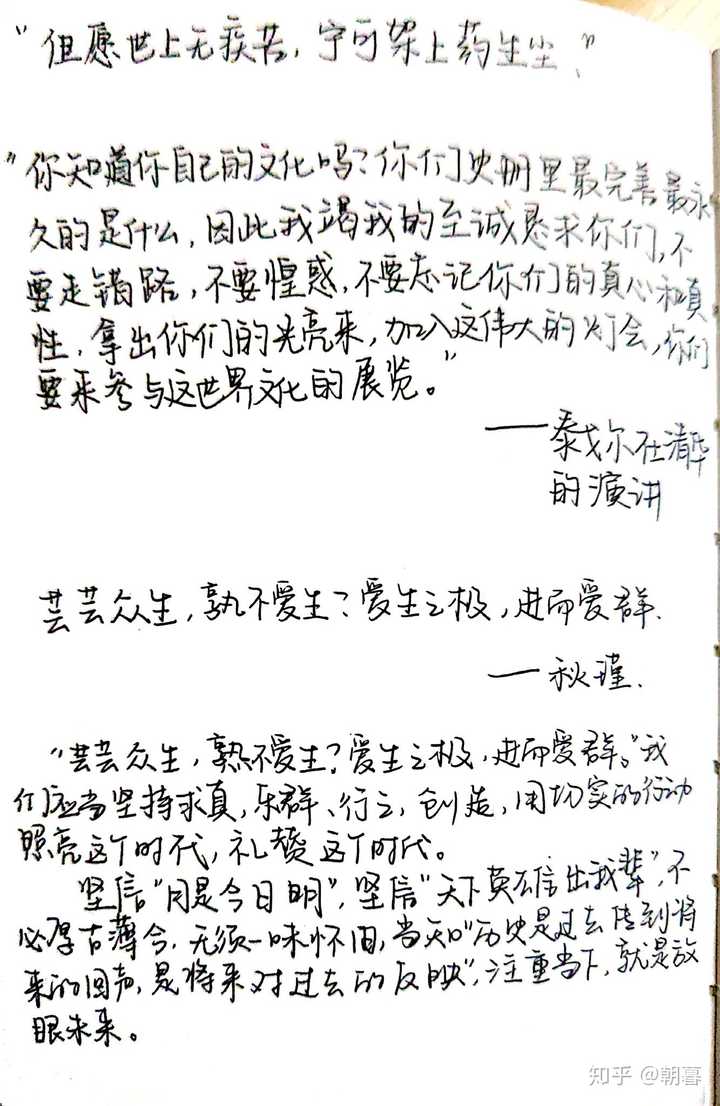 “但愿世上无疾苦，宁可架上药生尘”
“你知道你自己的文化吗？你们史册里最完善最永
久的是什么，因此我竭我的至诚恳求你们，不
要走错路，不要惶惑，不要忘记你们的真心和真
性，拿出你们的光亮来，加入这伟大的灯会，你们
要来参与这世界文化的展览。”
——泰戈尔在清华
的演讲
芸芸众生，孰不爱生？爱生之极，进而爱群.
——秋瑾.
“芸芸众生，熟不爱生？爱生之极，进而爱群。”我
们应当坚持求真，乐群、行之，创造，用切实的行动
照亮这个时代，礼赞这个时代。
坚信“月是今日明”，坚信“天下英雄信出我辈”，不
必厚古薄今，无须一味怀旧，当知“历史是过去传到将
来的回声，是将来对过去的反映”，注重当下，就是放
眼未来。
知乎 @朝暮